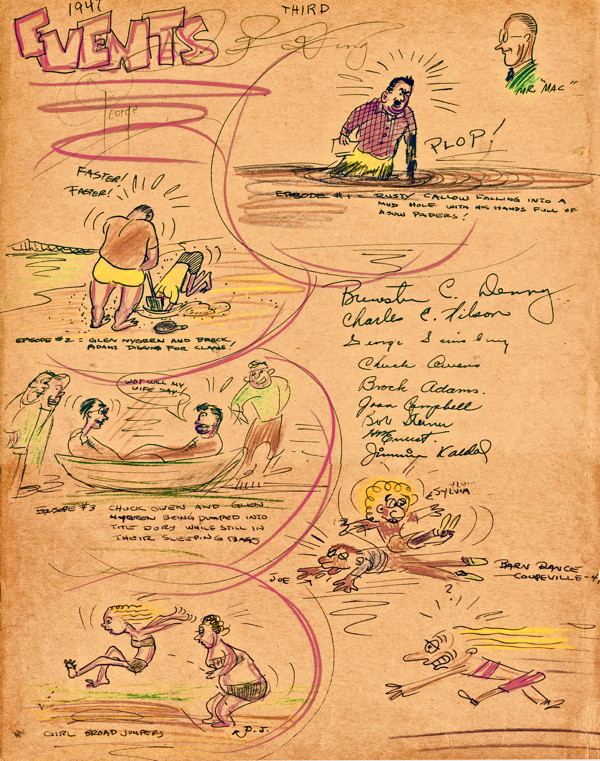 1947
THIRD
EVENTS
George
MR "MAC"
PLOP!
EPISODE #1 - RUSTY CALLOW FALLING INTO A
MUD HOLE WITH HIS HANDS FULL OF
ASUW PAPERS!
FASTER!
FASTER!
EPISODE #2 - GLEN NYGREN AND BROCK
ADAMS DIGGING FOR CLAMS!
Brewster C. Denny
Charles E. Wilson
Chuck Owens
Brock Adams.
Joan Campbell
Bob
Ernest.
WOT WILL MY
WIFE SAY!
EPISODE #3 CHUCK OWEN AND GLEN
NYGREN BEING DUMPED INTO
THE DORY WHILE STILL IN
THEIR SLEEPING BAGS
SYLVIA
JOE
BARN DANCE
COUPEVILLE
?
GIRL BROAD JUMPERS
P.J.